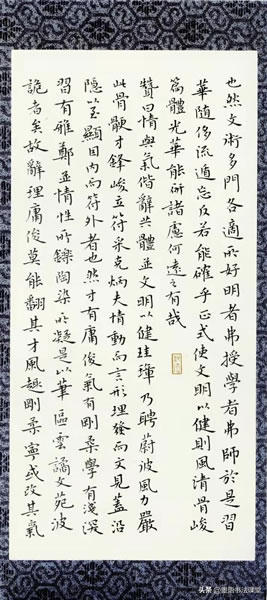 也然文術多門各適所好明者弗授學者弗師於是習
華隨侈流遁忘反若能確乎正式使文明以健則風清骨峻
篇體光華能研諸慮何遠之有哉
贊曰情與氣偕辭共體並文明以健珪璋乃聘蔚彼風力嚴
此骨鯁才鋒峻立符采克炳夫情動而言形理發而文見蓋沿
隱以至顯因內而符外者也然才有庸俊氣有剛柔學有淺深
習有雅鄭並情性所鑠陶染所凝是以筆區雲譎文苑波
詭者矣故辭理庸俊莫能翻其才風趣剛柔寧或改其氣
头条 @墨语书法课堂